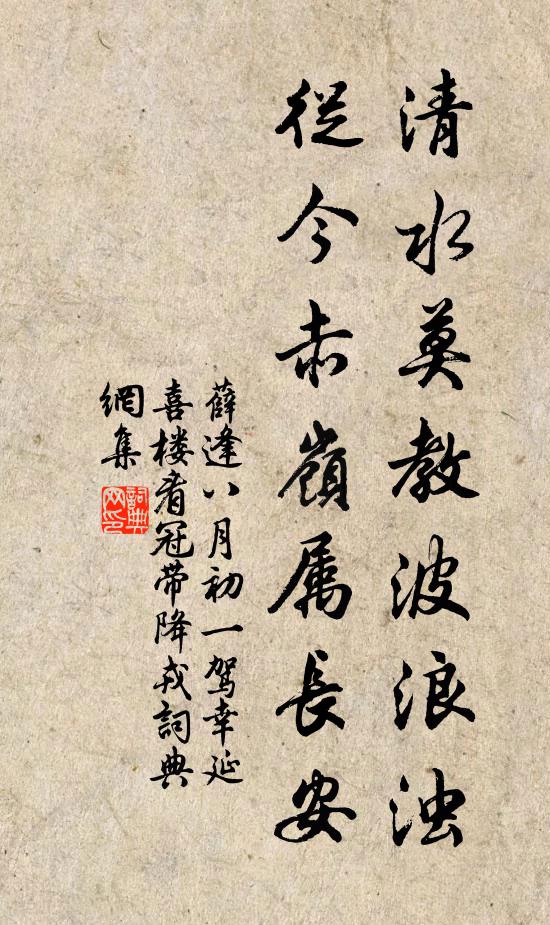 清水莫教波浪浊
從今赤嶺属長安
薛逢八月初一駕幸延
喜楼看冠带降戎詞典
網集
詞典
网印